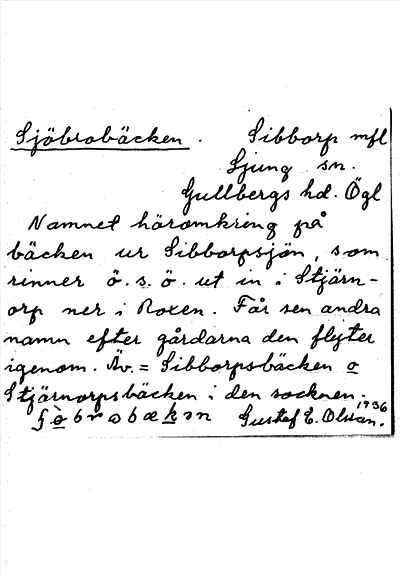 Sjöbrobäcken. Sibborp mfl
Ljung sn.
Gullbergs hd. Ögl
Namnet häromkring på
bäcken ur Sibborpsjön, som
rinner ö. s. ö. ut in i Stjärn-
orp ner i Roxen. Får sen andra
namn efter gårdarna den flyter
igenom. Äv. = Sibborpsbäcken o
Stjärnorpsbäcken i den socknen.
1936
Gustaf E. Olsson.